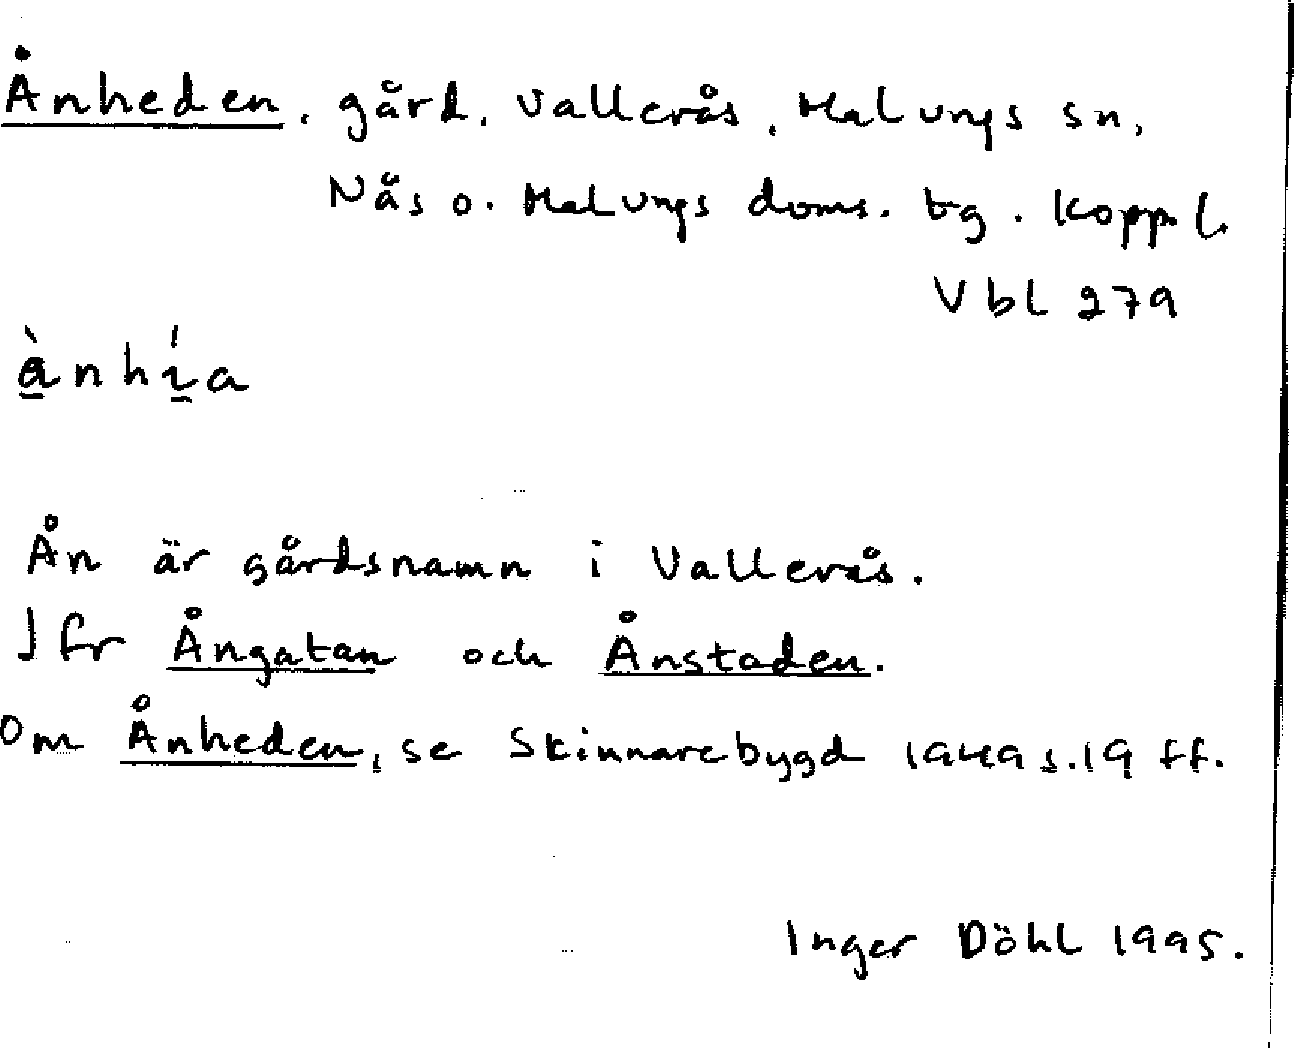 Ånheden, gård, Vallerås, Malungs sn,
Nås o. Malungs doms. tg. Kopp. l.
Vbl 279
ànhía
Ån är gårdsnamn i Vallerås.
Jfr Ångatan och Ånstaden.
Om Ånheden, se Skinnarebygd 1949 s. 19 ff.
Inger Döhl 1995.